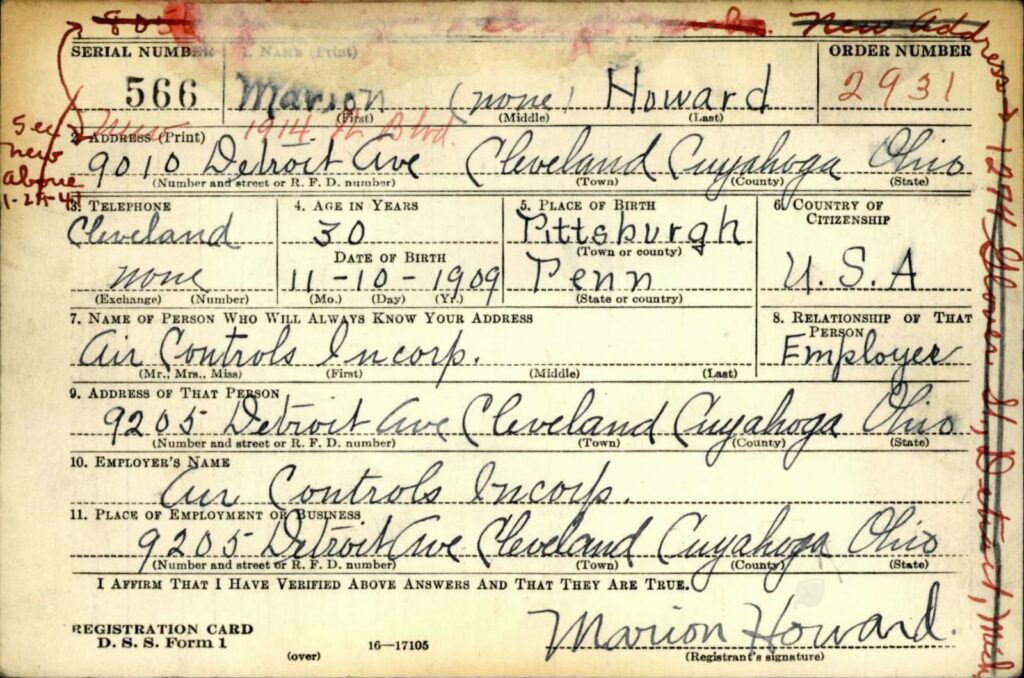 New Address → 12094 St, Detroit, Mich
SERIAL NUMBER 1. NAME (Print) ORDER NUMBER
566 Marion (none) Howard 2931
(First) (Middle) (Last)
See new above
1914 Blvd.
2. ADDRESS (Print)
9010 Detroit Ave Cleveland Cuyahoga Ohio
(Number and street or R. F. D. number) (Town) (County) (State)
3. TELEPHONE 4. AGE IN YEARS 5. PLACE OF BIRTH 6. COUNTRY OF CITIZENSHIP
Cleveland 30 Pittsburgh
(Town or county)
DATE OF BIRTH
none 11-10-1909 Penn U.S.A
(Exchange) (Number) (Mo.) (Day) (Yr.) (State or country)
7. NAME OF PERSON WHO WILL ALWAYS KNOW YOUR ADDRESS 8. RELATIONSHIP OF THAT PERSON
Air Controls Incorp. Employer
(Mr., Mrs., Miss) (First) (Middle) (Last)
9. ADDRESS OF THAT PERSON
9205 Detroit Ave Cleveland Cuyahoga Ohio
(Number and street or R. F. D. number) (Town) (County) (State)
10. EMPLOYER'S NAME
Air Controls Incorp.
11. PLACE OF EMPLOYMENT OR BUSINESS
9205 Detroit Ave Cleveland Cuyahoga Ohio
(Number and street or R. F. D. number) (Town) (County) (State)
I AFFIRM THAT I HAVE VERIFIED ABOVE ANSWERS AND THAT THEY ARE TRUE.
Marion Howard.
REGISTRATION CARD
D. S. S. Form 1
(over) 16—17105 (Registrant's signature)